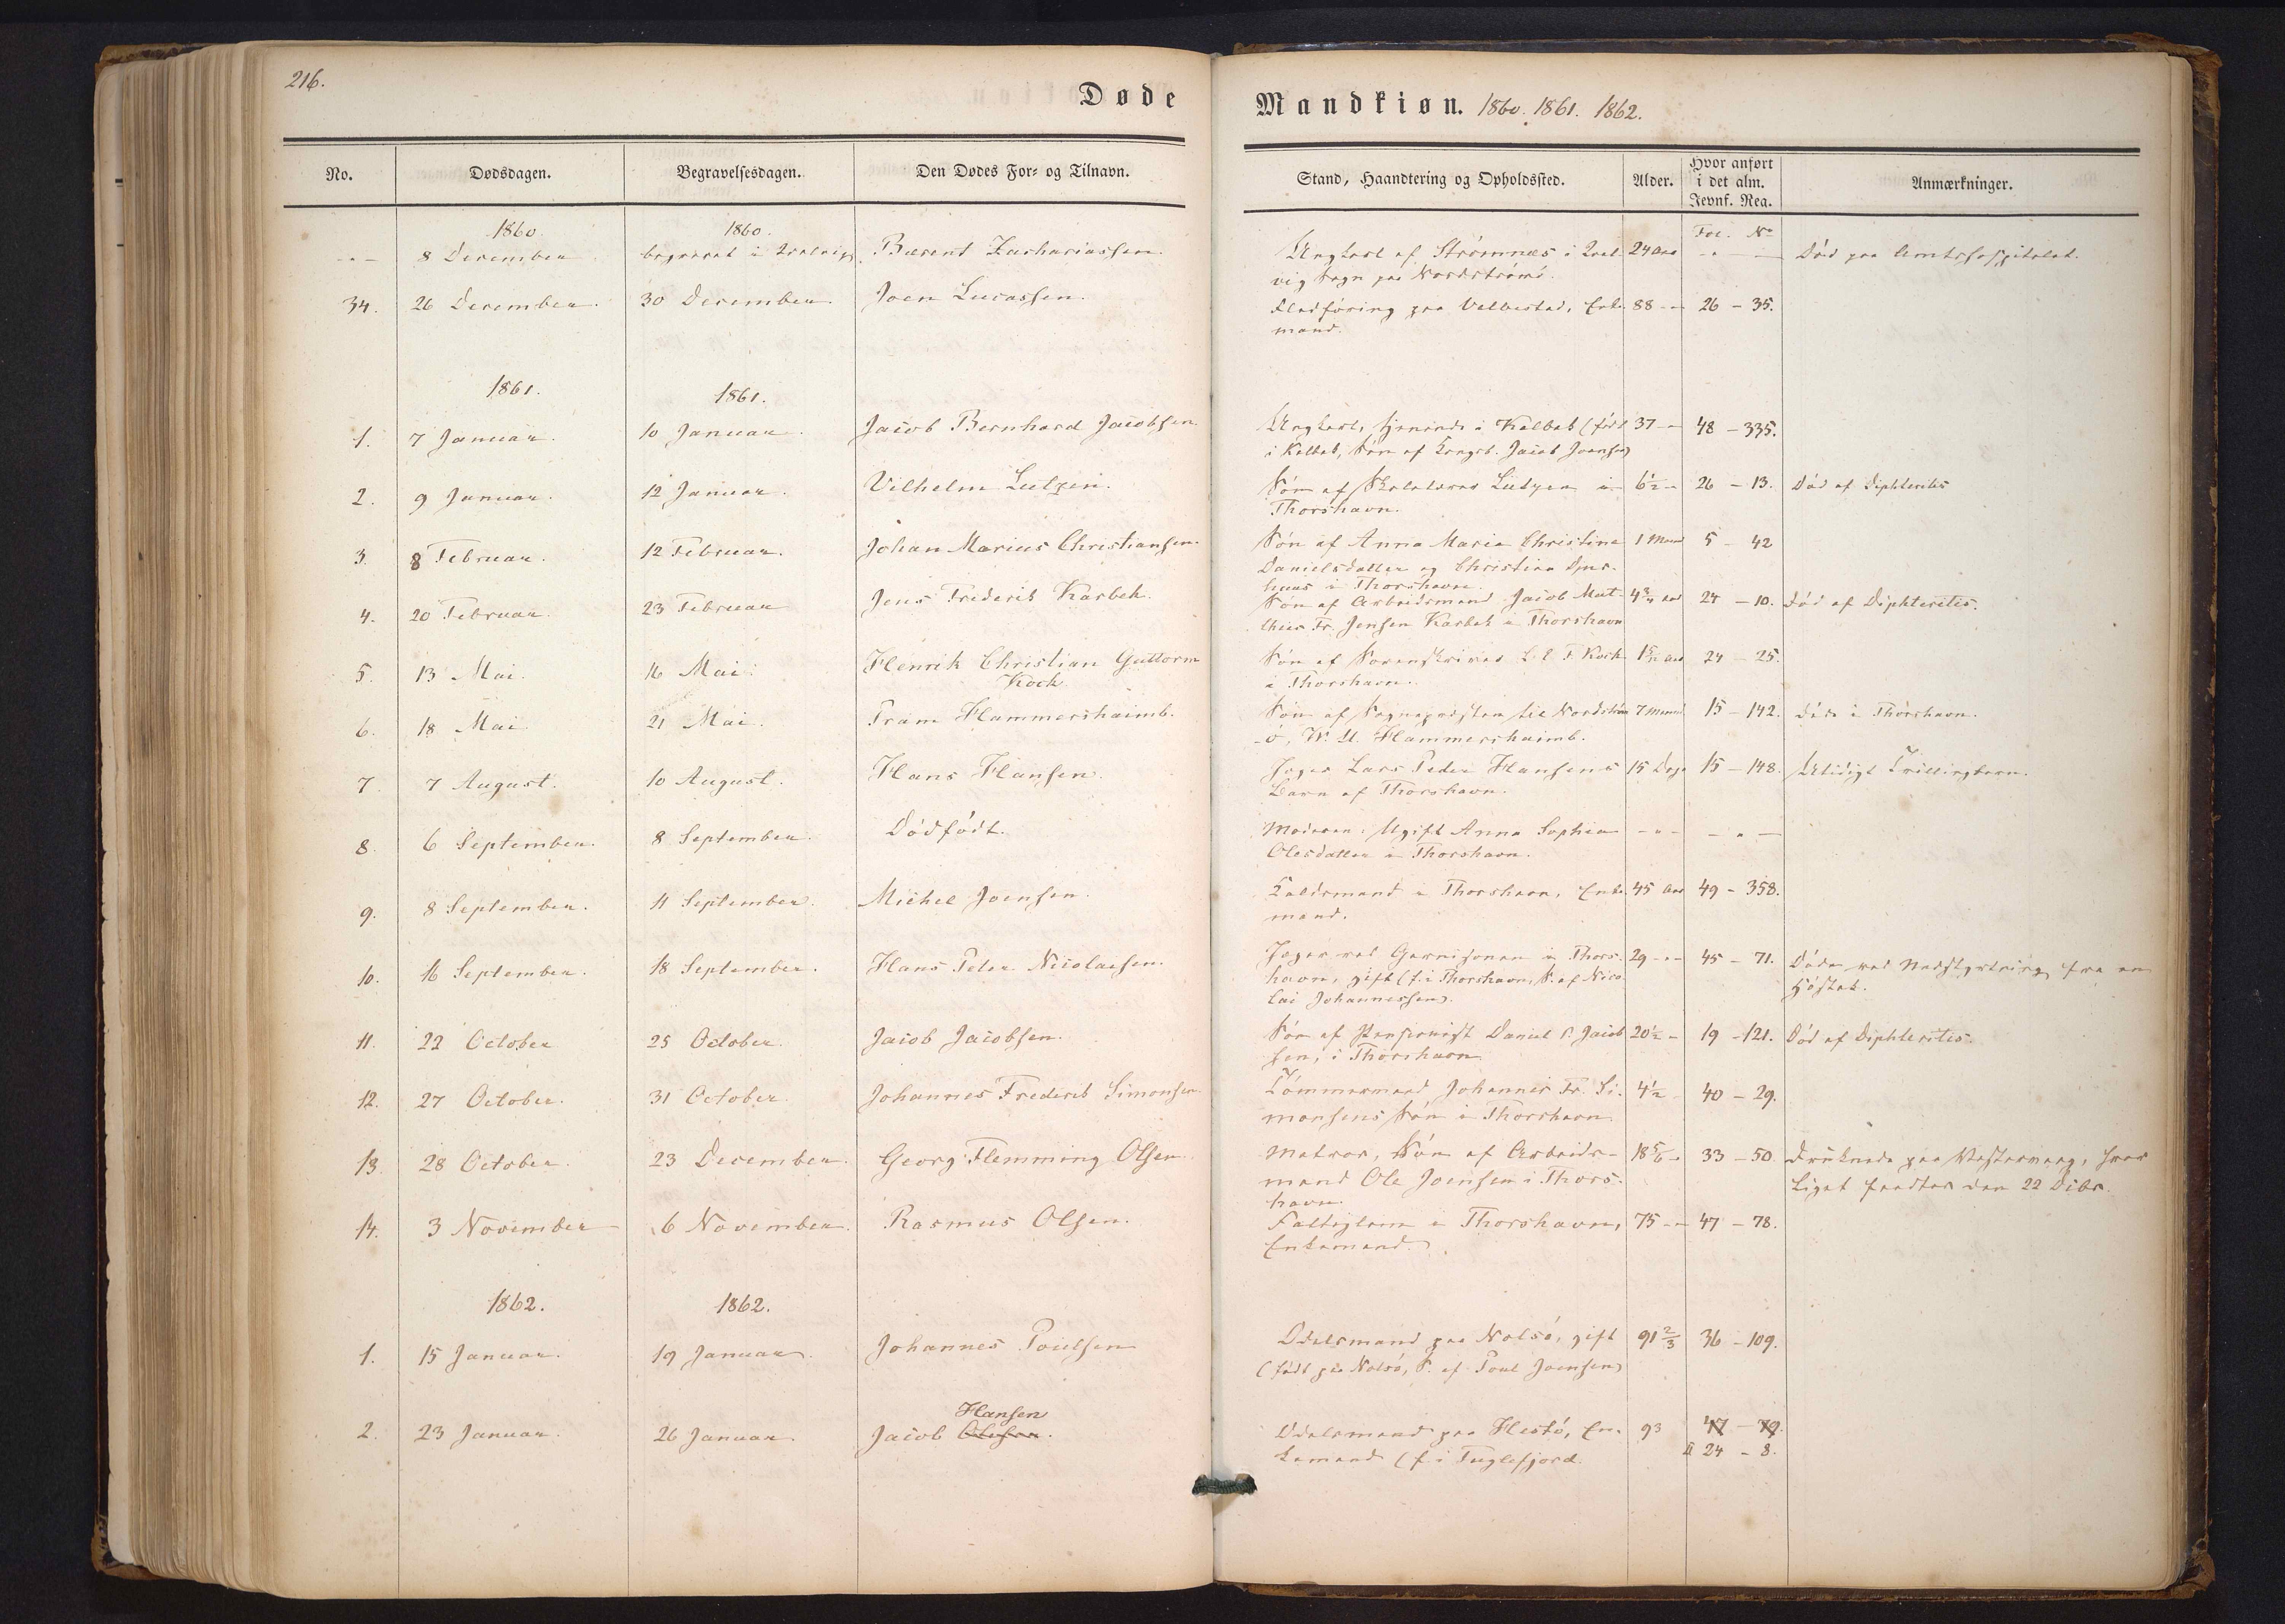 216.
Døde
Mandkiøn. 1860. 1861. 1862.
No.
Dødsdagen.
Begravelsesdagen.
Den Dødes For- og Tilnavn.
Stand, Haandtering og Opholdssted.
Alder.
Hvor anført
i det alm.
Jevnf. Reg.
Anmærkninger.
1860.
1860.
Fol. No
8 December
begravet i Qvalvig
Berent Zachariassen.
Ungkarl af Strømnæs i Qval-
vig Sogn paa Nordstrømø.
24 Aar
Død paa Amtshospitalet.
34.
26 December.
30 December.
Joen Lucassen.
Fladføring paa Velbestad, Enke-
mand.
88 - "
26 - 35.
1861.
1861.
1.
7 Januar.
10 Januar.
Jacob Bernhard Jacobsen.
Ungkarl, tjenende i Kalbak (født
i Kalbak, Søn af Kongsb. Jacob Joensen)
37 - "
48 - 335.
2.
9 Januar.
12 Januar.
Vilhelm Lützen.
Søn af Skolelærer Lützen i
Thorshavn.
6½ -
26 - 13.
Død af Diphteritis
3.
8 Februar.
12 Februar.
Johan Marius Christiansen.
Søn af Anna Maria Christine
Danielsdatter og Christian Djur-
huus i Thorshavn.
1 Maaned
5 - 42
4.
20 Februar.
23 Februar
Jens Frederik Karbek.
Søn af Arbeidsmand Jacob Mat-
thias Fr. Jensen Karbek i Thorshavn
4¾ Aar
24 - 10.
Død af Diphteritis.
5.
13 Mai.
16 Mai.
Henrik Christian Guttorm
Koch
Søn af Sorenskriver L. C. F. Koch
i Thorshavn.
1 5/12 Aar
24 - 25.
6.
18 Mai
21 Mai.
Fram Hammershaimb.
Søn af Sognepræsten til Nordstrøm-
ø, V. U. Hammershaimb.
7 Maaned
15 - 142.
døde i Thorshavn.
7.
7 August.
10 August.
Hans Hansen.
Jæger Lars Peder Hansens
Barn af Thorshavn.
15 Dage
15 - 148.
Utidigt Trillingbarn.
8.
6 September.
8 September.
Dødfødt.
Moderen: Ugift Anna Sophia
Olesdatter i Thorshavn.
- " -
- " -
9.
8 September.
11 September.
Michel Joensen.
i Thorshavn, Enke-
mand.
45 Aar
49 - 358.
10.
16 September.
18 September.
Hans Peter Nicolaisen.
Jæger ved Garnisonen i Thors-
havn, gift (f. i Thorshavn, S. af Nico-
lai Johannessen).
29 - " -
45 - 71.
Døde ved Nedstyrtning fra en
Høstak.
11.
22 October
25 October.
Jacob Jacobsen.
Søn af Pensionist Daniel P. Jacob-
sen, i Thorshavn.
20½ -
19 - 121.
Død af Diphteritis.
12.
27 October.
31 October.
Johannes Frederik Simonsen
Tømmermand Johannes Fr. Si-
monsens Søn i Thorshavn.
4½
40 - 29.
13.
28 October.
23 December.
Georg Flemming Olsen.
Matros, Søn af Arbeids-
mand Ole Joensen i Thors-
havn.
18 5/6 -
33 - 50.
Druknede paa Vestervaag, hvor
Liget fandtes den 22 Decbr.
14.
3 November
6 November.
Rasmus Olsen.
Fattiglem i Thorshavn,
Enkemand.
75 - "
47 - 78.
1862.
1862.
1.
15 Januar.
19 Januar.
Johannes Poulsen
Odelsmand paa Nolsø, gift
(født paa Nolsø, S. af Poul Joensen)
91 2/3
36 - 109.
2.
23 Januar.
26 Januar.
Hansen
Jacob Olesen.
Odelsmand paa Hestø, En-
kemand (f. i Fuglefjord.
93
47 - 79.
II 24 - 8.